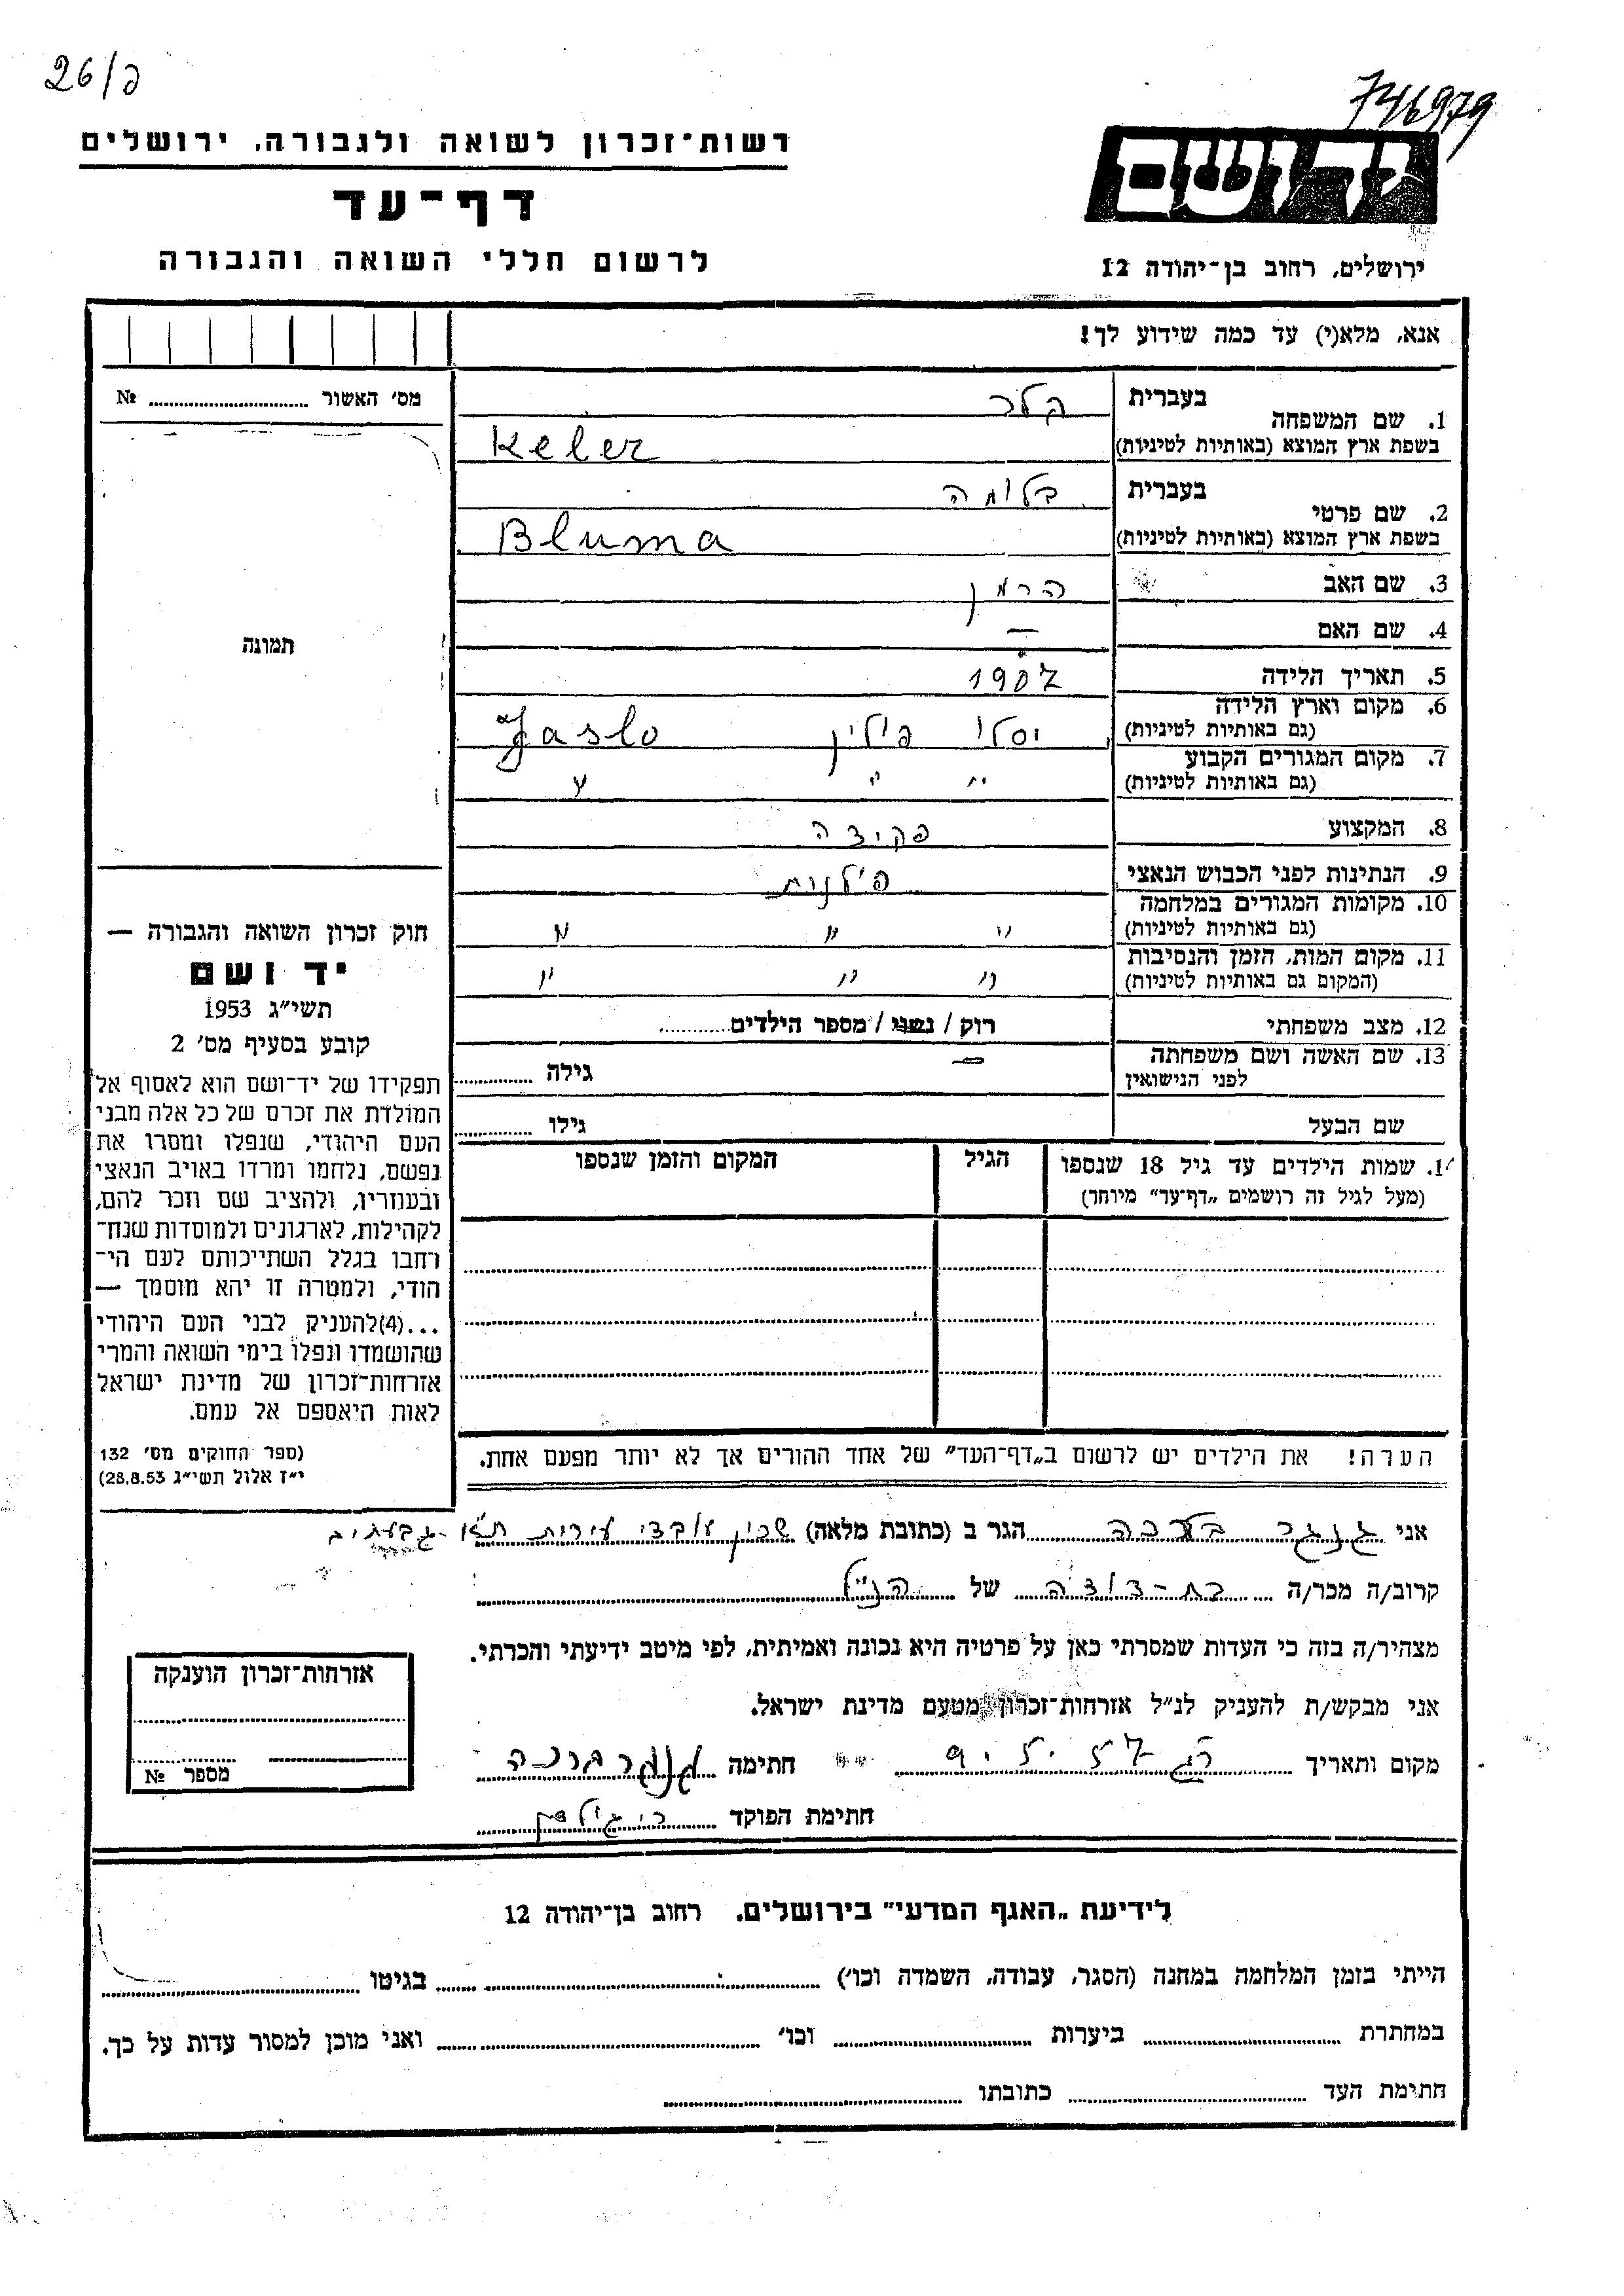 26/ב
746979
רשות־זכרון לשואה ולגבורה, ירושלים
דף־עד
לרשום חללי השואה והגבורה
יד ושם
ירושלים, רחוב בן־יהודה 12
אנא, מלא(י) עד כמה שידוע לך!
מס׳ האשור № 
1. שם המשפחה בעברית קלר
בשפת ארץ המוצא (באותיות לטיניות) Keler
2. שם פרטי בעברית בלומה
בשפת ארץ המוצא (באותיות לטיניות) Bluma
3. שם האב הרמן
4. שם האם —
5. תאריך הלידה 1907
6. מקום וארץ הלידה (גם באותיות לטיניות) יסלו פולין Jaslo
7. מקום המגורים הקבוע (גם באותיות לטיניות) " " "
8. המקצוע פקידה
9. הנתינות לפני הכבוש הנאצי פולנית
10. מקומות המגורים במלחמה (גם באותיות לטיניות) " " "
11. מקום המות, הזמן והנסיבות (המקום גם באותיות לטיניות) " " "
12. מצב משפחתי רוק / נשוי / מספר הילדים
13. שם האשה ושם משפחתה לפני הנישואין — גילה
שם הבעל גילו
14. שמות הילדים עד גיל 18 שנספו הגיל המקום והזמן שנספו
(מעל לגיל זה רושמים „דף־עד" מיוחד)
הערה! את הילדים יש לרשום ב„דף־העד" של אחד ההורים אך לא יותר מפעם אחת.
תמונה
חוק זכרון השואה והגבורה —
יד ושם
תשי״ג 1953
קובע בסעיף מס׳ 2
תפקידו של יד־ושם הוא לאסוף אל
המולדת את זכרם של כל אלה מבני
העם היהודי, שנפלו ומסרו את
נפשם, נלחמו ומרדו באויב הנאצי
ובעוזריו, ולהציב שם וזכר להם,
לקהילות, לארגונים ולמוסדות שנח־
רבו בגלל השתייכותם לעם הי־
הודי, ולמטרה זו יהא מוסמך —
...(4)להעניק לבני העם היהודי
שהושמדו ונפלו בימי השואה והמרי
אזרחות־זכרון של מדינת ישראל
לאות היאספם אל עמם.
(ספר החוקים מס׳ 132
י״ז אלול תשי״ג 28.8.53)
אני גנגר ברכה הגר ב (כתובת מלאה) שכון עובדי עירית ת״א - גבעתיים
קרוב/ה מכר/ה בת-דודה של הנ״ל
מצהיר/ה בזה כי העדות שמסרתי כאן על פרטיה היא נכונה ואמיתית, לפי מיטב ידיעתי והכרתי.
אני מבקש/ת להעניק לנ״ל אזרחות־זכרון מטעם מדינת ישראל.
מקום ותאריך חתימה גנגר ברכה
חתימת הפוקד
אזרחות־זכרון הוענקה
מספר №
לידיעת „האגף המדעי" בירושלים, רחוב בן־יהודה 12
הייתי בזמן המלחמה במחנה (הסגר, עבודה, השמדה וכו׳) בגיטו
במחתרת ביערות וכו׳ ואני מוכן למסור עדות על כך.
חתימת העד כתובתו